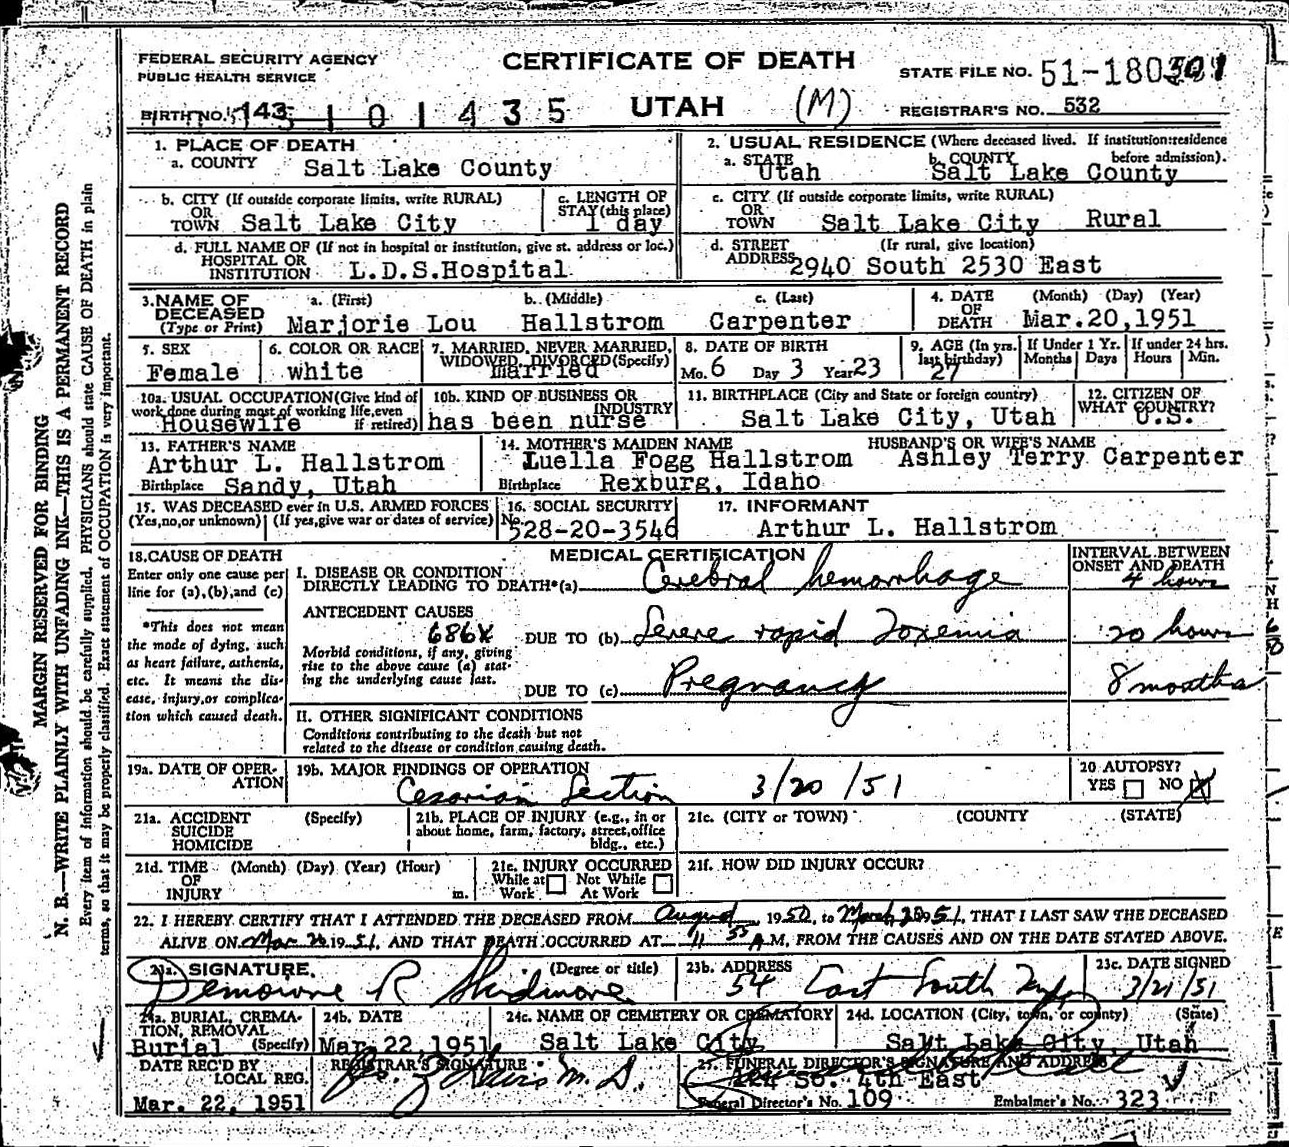 FEDERAL SECURITY AGENCY
PUBLIC HEALTH SERVICE
CERTIFICATE OF DEATH
STATE FILE NO. 51-180
BIRTH NO. 143 101435
UTAH (M)
REGISTRAR'S NO. 532
1. PLACE OF DEATH
a. COUNTY Salt Lake County
2. USUAL RESIDENCE (Where deceased lived. If institution:residence before admission).
a. STATE Utah b. COUNTY Salt Lake County
b. CITY (If outside corporate limits, write RURAL)
OR
TOWN Salt Lake City
c. LENGTH OF
STAY (this place)
1 day
c. CITY (If outside corporate limits, write RURAL)
OR
TOWN Salt Lake City Rural
d. FULL NAME OF (If not in hospital or institution, give st. address or loc.)
HOSPITAL OR
INSTITUTION L.D.S.Hospital
d. STREET (If rural, give location)
ADDRESS 2940 South 2530 East
3. NAME OF DECEASED
(Type or Print)
a. (First) b. (Middle) c. (Last)
Marjorie Lou Hallstrom Carpenter
4. DATE OF DEATH (Month) (Day) (Year)
Mar.20,1951
5. SEX
Female
6. COLOR OR RACE
white
7. MARRIED, NEVER MARRIED,
WIDOWED, DIVORCED (Specify)
married
8. DATE OF BIRTH
Mo. 6 Day 3 Year 23
9. AGE (In yrs. last birthday)
27
If Under 1 Yr.
Months Days
If under 24 hrs.
Hours Min.
10a. USUAL OCCUPATION (Give kind of
work done during most of working life, even
if retired)
Housewife
10b. KIND OF BUSINESS OR
INDUSTRY
has been nurse
11. BIRTHPLACE (City and State or foreign country)
Salt Lake City, Utah
12. CITIZEN OF
WHAT COUNTRY?
U.S.
13. FATHER'S NAME
Arthur L. Hallstrom
Birthplace Sandy, Utah
14. MOTHER'S MAIDEN NAME
Luella Fogg Hallstrom
Birthplace Rexburg, Idaho
HUSBAND'S OR WIFE'S NAME
Ashley Terry Carpenter
15. WAS DECEASED ever in U.S. ARMED FORCES
(Yes,no,or unknown) (If yes,give war or dates of service)
16. SOCIAL SECURITY
No. 528-20-3546
17. INFORMANT
Arthur L. Hallstrom
18. CAUSE OF DEATH
Enter only one cause per
line for (a),(b),and (c)
*This does not mean
the mode of dying, such
as heart failure, asthenia,
etc. It means the dis-
ease, injury,or complica-
tion which caused death.
MEDICAL CERTIFICATION
INTERVAL BETWEEN
ONSET AND DEATH
I. DISEASE OR CONDITION
DIRECTLY LEADING TO DEATH*(a) Cerebral hemorrhage 4 hours
ANTECEDENT CAUSES
686X
Morbid conditions, if any, giving
rise to the above cause (a) stat-
ing the underlying cause last.
DUE TO (b) Severe rapid Toxemia 20 hours
DUE TO (c) Pregnancy 8 months
II. OTHER SIGNIFICANT CONDITIONS
Conditions contributing to the death but not
related to the disease or condition causing death.
19a. DATE OF OPER-
ATION
19b. MAJOR FINDINGS OF OPERATION
Cesarian Section 3/20/51
20 AUTOPSY?
YES NO X
21a. ACCIDENT (Specify)
SUICIDE
HOMICIDE
21b. PLACE OF INJURY (e.g., in or
about home, farm, factory, street,office
bldg., etc.)
21c. (CITY or TOWN) (COUNTY) (STATE)
21d. TIME (Month) (Day) (Year) (Hour)
OF
INJURY m.
21e. INJURY OCCURRED
While at Work Not While At Work
21f. HOW DID INJURY OCCUR?
22. I HEREBY CERTIFY THAT I ATTENDED THE DECEASED FROM August, 1950, to March 20 1951, THAT I LAST SAW THE DECEASED
ALIVE ON Mar 20 1951, AND THAT DEATH OCCURRED AT 11 55 A.M, FROM THE CAUSES AND ON THE DATE STATED ABOVE.
23a. SIGNATURE. (Degree or title)
R Skidmore
23b. ADDRESS
54 East South
23c. DATE SIGNED
3/21/51
24a. BURIAL, CREMA-
TION, REMOVAL
Burial (Specify)
24b. DATE
Mar. 22, 1951
24c. NAME OF CEMETERY OR CREMATORY
Salt Lake City
24d. LOCATION (City, town, or county) (State)
Salt Lake City, Utah
DATE REC'D BY
LOCAL REG.
Mar. 22, 1951
REGISTRAR'S SIGNATURE
M.D.
25. FUNERAL DIRECTOR'S SIGNATURE AND ADDRESS
124 So. 4th East
Funeral Director's No. 109 Embalmer's No. 323
MARGIN RESERVED FOR BINDING
N. B.—WRITE PLAINLY WITH UNFADING INK—THIS IS A PERMANENT RECORD
Every item of information should be carefully supplied. PHYSICIANS should state CAUSE OF DEATH in plain
terms, so that it may be properly classified. Exact statement of OCCUPATION is very important.